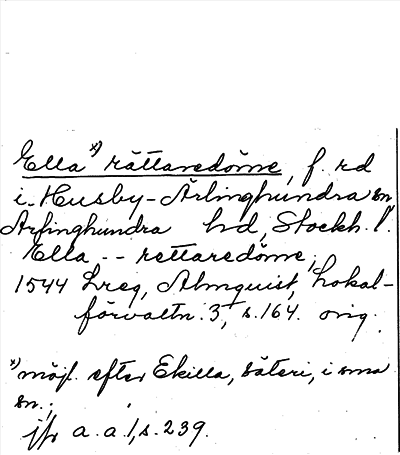 Ella x) rättaredöme, f. rd
i Husby-Ärlinghundra sn
Ärlinghundra hd, Stockh. l.
Ella -- rettaredöme,
1544 Lreg, Almquist, Lokal-
förvaltn. 3, s. 164. orig.
x) möjl. efter Ekilla, säteri, i sma
sn.;
jfr a.a. 1, s. 239.